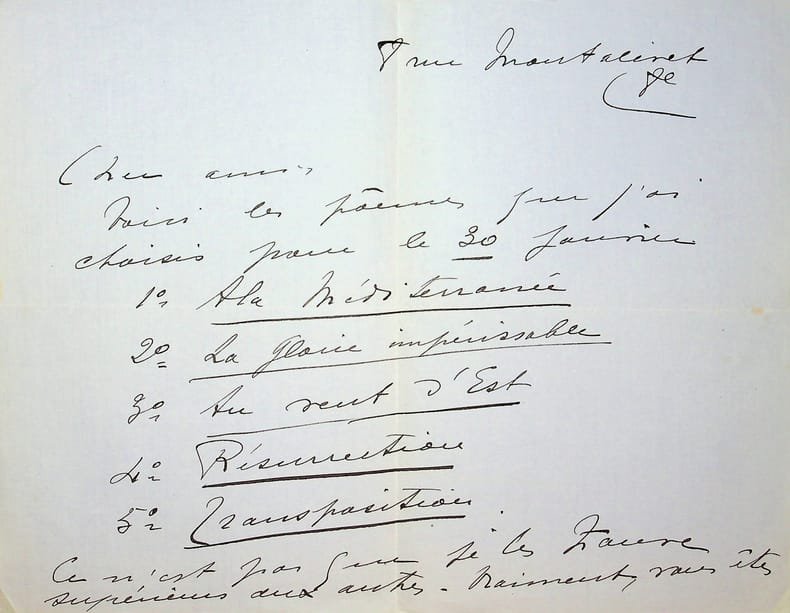 8 rue Montalivet
8e
Cher ami
Voici les poêmes que j'ai
choisis pour le 30 Janvier
1º A la Méditerranée
2º La Gloire impérissable
3º Au vent d'Est
4º Résurrection
5º Transposition
Ce n'est pas que je les trouve
supérieurs aux autres - Vraiment, vous êtes